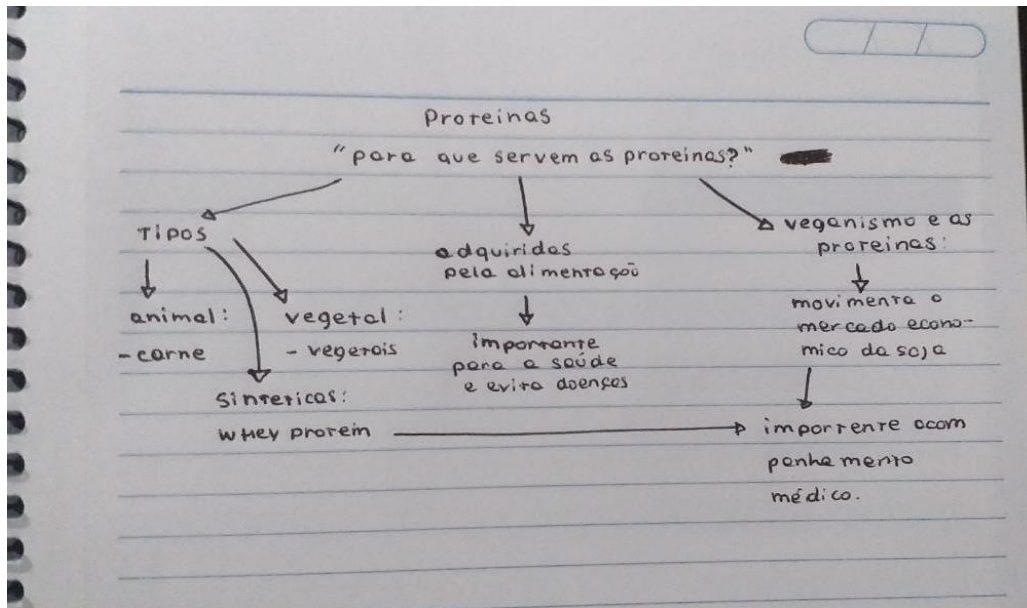 Proteinas
"para que servem as proteinas?"
Tipos
animal:
- carne
vegetal:
- vegetais
Sinteticas:
WHey protein
adquiridas
pela alimentação
importante
para a saúde
e evita doenças
veganismo e as
proteinas:
movimenta o
mercado econo-
mico da soja
importente acom
panhamento
médico.